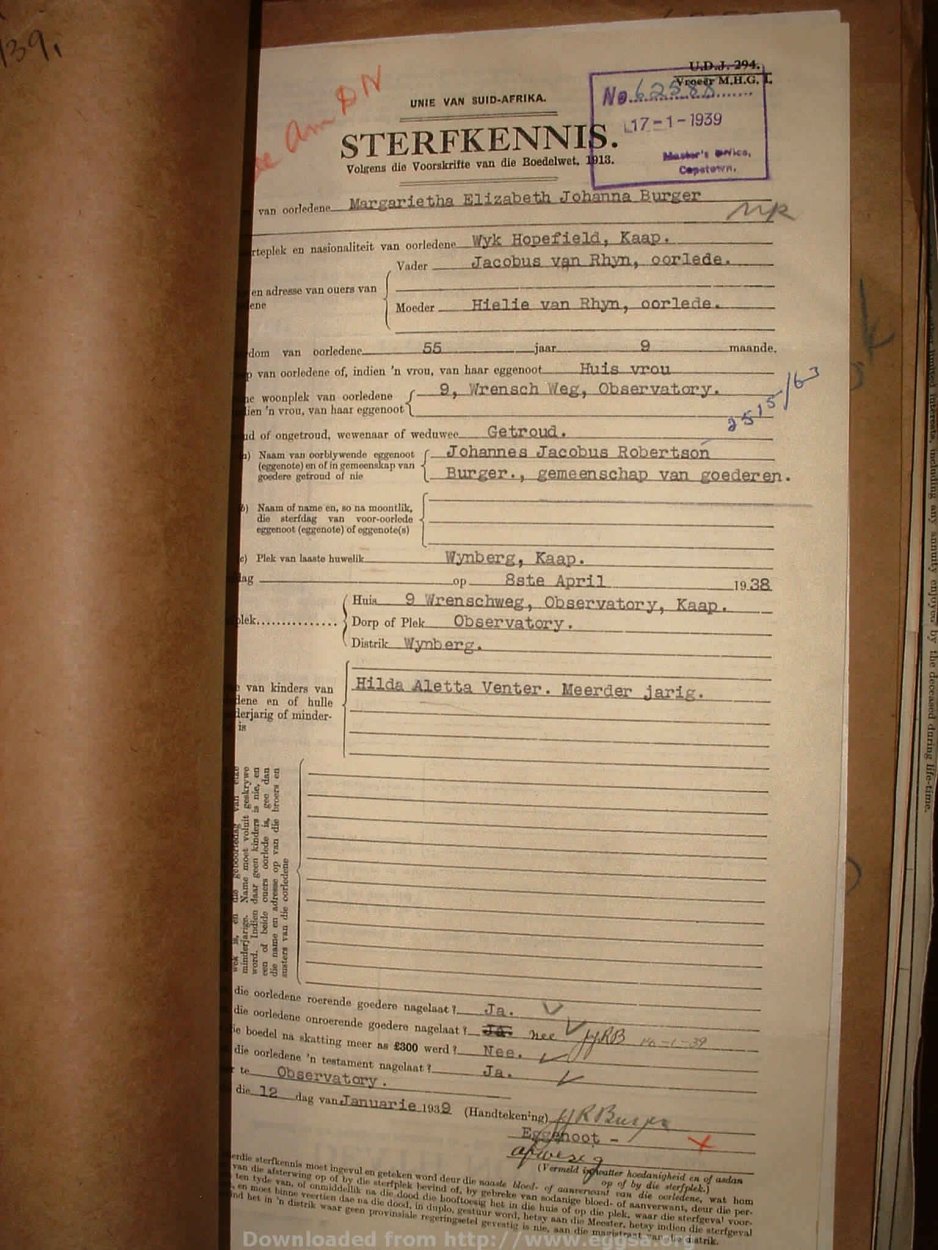 139,
U.D.J. 294.
Vroeër M.H.G. 1.
No. 62588
17-1-1939
Master's Office,
Capetown.
Am DN
UNIE VAN SUID-AFRIKA.
STERFKENNIS.
Volgens die Voorskrifte van die Boedelwet, 1913.
van oorledene Margarietha Elizabeth Johanna Burger
rteplek en nasionaliteit van oorledene Wyk Hopefield, Kaap.
Vader Jacobus van Rhyn, oorlede.
en adresse van ouers van
ene
Moeder Hielie van Rhyn, oorlede.
dom van oorledene 55 jaar 9 maande.
p van oorledene of, indien 'n vrou, van haar eggenoot Huis vrou
ne woonplek van oorledene 9, Wrensch Weg, Observatory.
lien 'n vrou, van haar eggenoot
2515/63
ud of ongetroud, wewenaar of weduwee Getroud.
a) Naam van oorblywende eggenoot Johannes Jacobus Robertson
(eggenote) en of in gemeenskap van Burger., gemeenschap van goederen.
goedere getroud of nie
b) Naam of name en, so na moontlik,
die sterfdag van voor-oorlede
eggenoot (eggenote) of eggenote(s)
c) Plek van laaste huwelik Wynberg, Kaap.
dag op 8ste April 1938
Huis 9 Wrenschweg, Observatory, Kaap.
plek Dorp of Plek Observatory.
Distrik Wynberg.
van kinders van Hilda Aletta Venter. Meerder jarig.
lene en of hulle
derjarig of minder-
is
wok is, en die geboortedag van elke
minderjarige. Name moet voluit geskrywe
word. Indien daar geen kinders is nie, en
een of beide ouers oorlede is, gee dan
die name en adresse op van die broers en
susters van die oorledene
die oorledene roerende goedere nagelaat? Ja.
die oorledene onroerende goedere nagelaat? Ja. nee JJRB 12-1-39
ie boedel na skatting meer as £300 werd? Nee.
die oorledene 'n testament nagelaat? Ja.
r te Observatory.
die 12 dag van Januarie 1939 (Handtekening) JJR Burger
Eggenoot -
afwesig
(Vermeld in watter hoedanigheid en of aanwesig
op of by die sterfplek.)
erdie sterfkennis moet ingevul en geteken word deur die naaste bloed- of aanverwant van die oorledene, wat hom
van die afsterwing op of by die sterfplek bevind of, by gebreke van sodanige bloed- of aanverwant, deur die per-
ten tyde van, of onmiddellik na die dood die hooftoesig het in die huis of op die plek, waar die sterfgeval voor-
en moet binne veertien dae na die dood, in duplo, gestuur word, hetsy aan die Meester, hetsy indien die sterfgeval
nd het in 'n distrik waar geen provinsiale regeringsetel gevestig is nie, aan die magistraat van die distrik.
limited interests, including any annuity enjoyed by the deceased during life-time.
Downloaded from http://www.eggsa.org